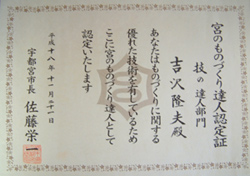 宮のものづくり達人認定証
技の達人部門
吉沢隆夫殿
あなたはものづくりに関する
優れた技術を有しているため
ここに宮のものづくり達人として
認定いたします
平成十八年十一月二十一日
宇都宮市長 佐藤栄一